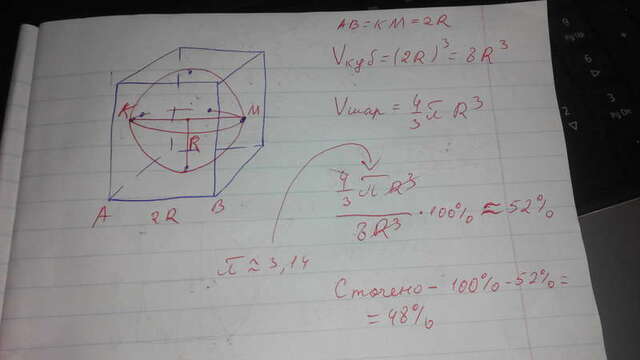 AB = KM = 2R
Vкуб = (2R)³ = 8R³
Vшар = 4/3 π R³
K M
R
A B
2R
4/3 π R³ / 8R³ · 100% ≈ 52%
π ≈ 3,14
Сточено - 100% - 52% =
= 48%